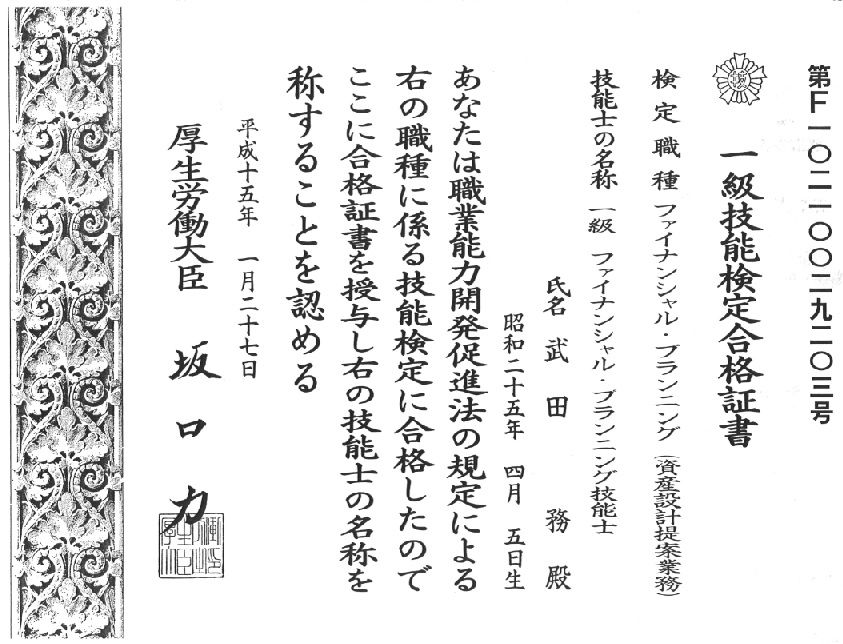 第F一〇二一〇〇二九二〇三号
一級技能検定合格証書
検定職種 ファイナンシャル・プランニング(資産設計提案業務)
技能士の名称 一級 ファイナンシャル・プランニング技能士
氏名 武田 務 殿
昭和二十五年 四月 五日生
あなたは職業能力開発促進法の規定による
右の職種に係る技能検定に合格したので
ここに合格証書を授与し右の技能士の名称を
称することを認める
平成十五年 一月二十七日
厚生労働大臣 坂口力